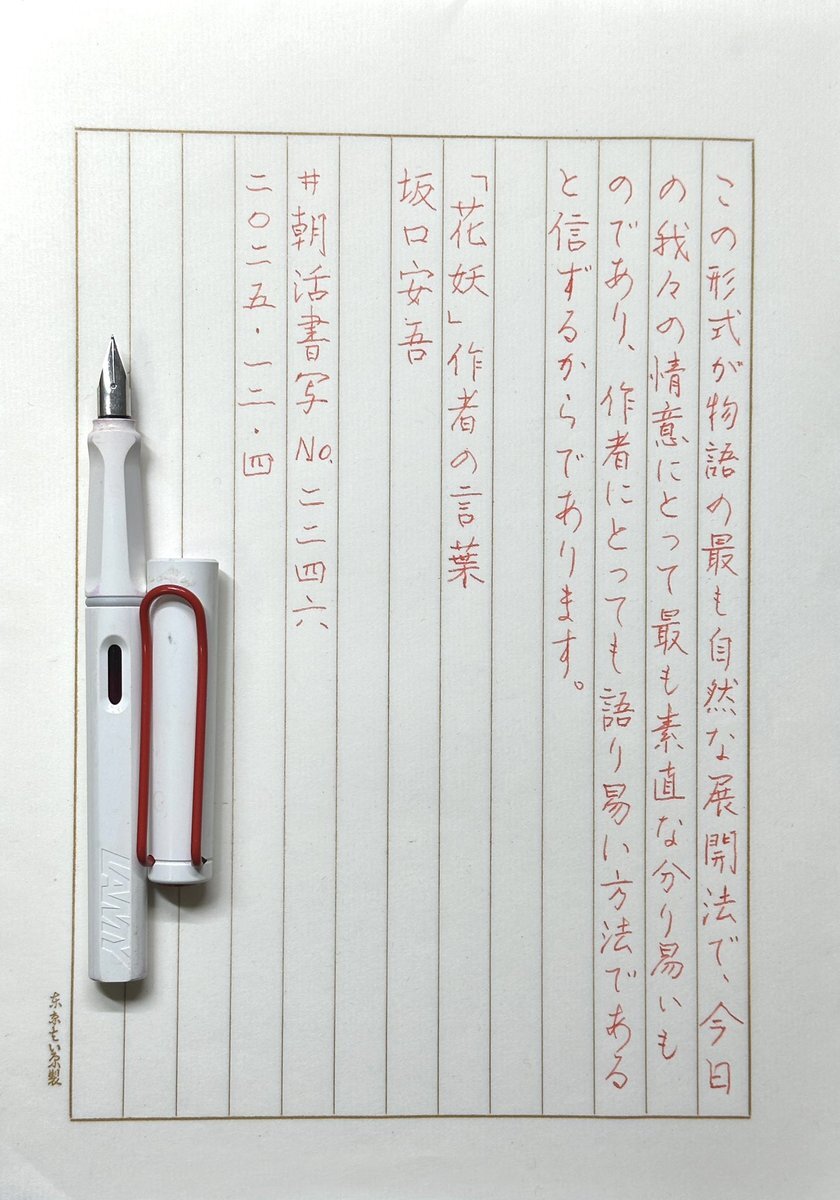 この形式が物語の最も自然な展開法で、今日
の我々の情意にとって最も素直な分り易いも
のであり、作者にとっても語り易い方法である
と信ずるからであります。
「花妖」作者の言葉
坂口安吾
#朝活書写No.二二四六
二〇二五・一二・四
LAMY